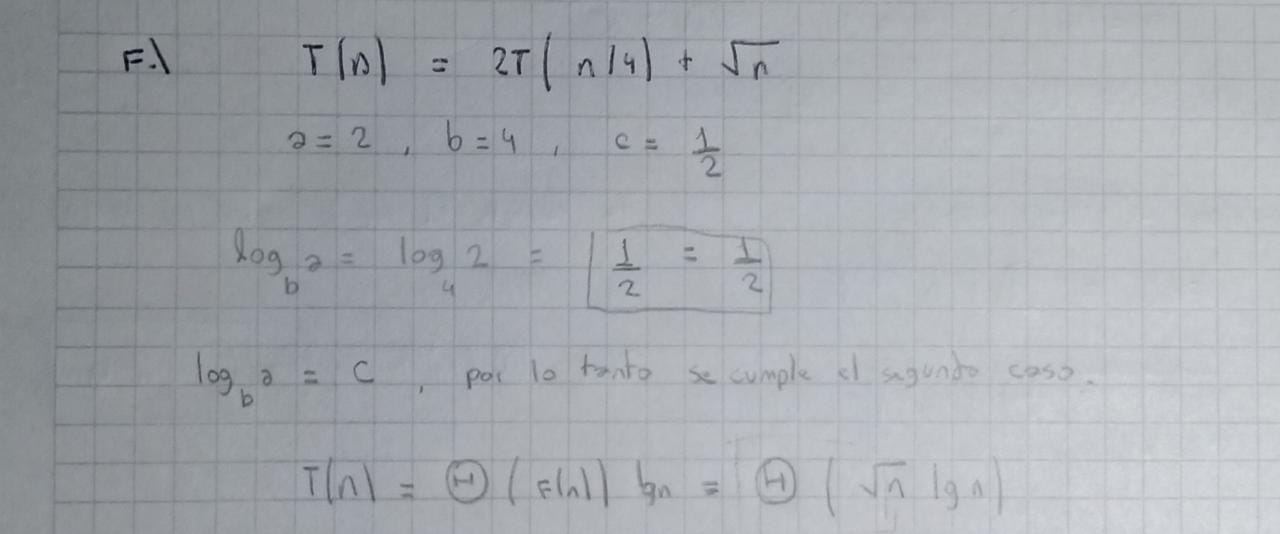 F.\ T(n) = 2T(n/4) + √n
a = 2 , b = 4 , c = 1/2
log_b a = log_4 2 = 1/2 = 1/2
log_b a = C , por lo tanto se cumple el segundo caso.
T(n) = Θ(F(n)) lgn = Θ(√n lg n)